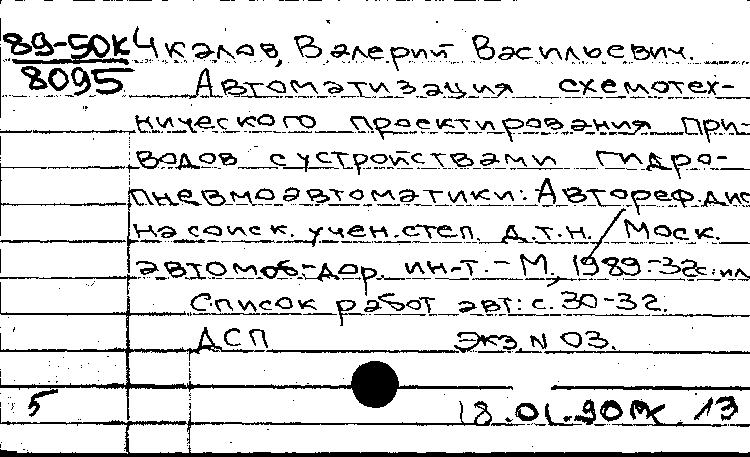 89-50к Чкалов, Валерий Васильевич.
8095 Автоматизация схемотех-
нического проектирования при-
водов с устройствами гидро-
пневмоавтоматики: Автореф. дис
на соиск. учен. степ. д.т.н. / Моск.
автомоб.-дор. ин-т. - М., 1989.-32с.: ил
Список работ авт.: с. 30-32.
ДСП Экз. N 03.
5 18.01.90 13